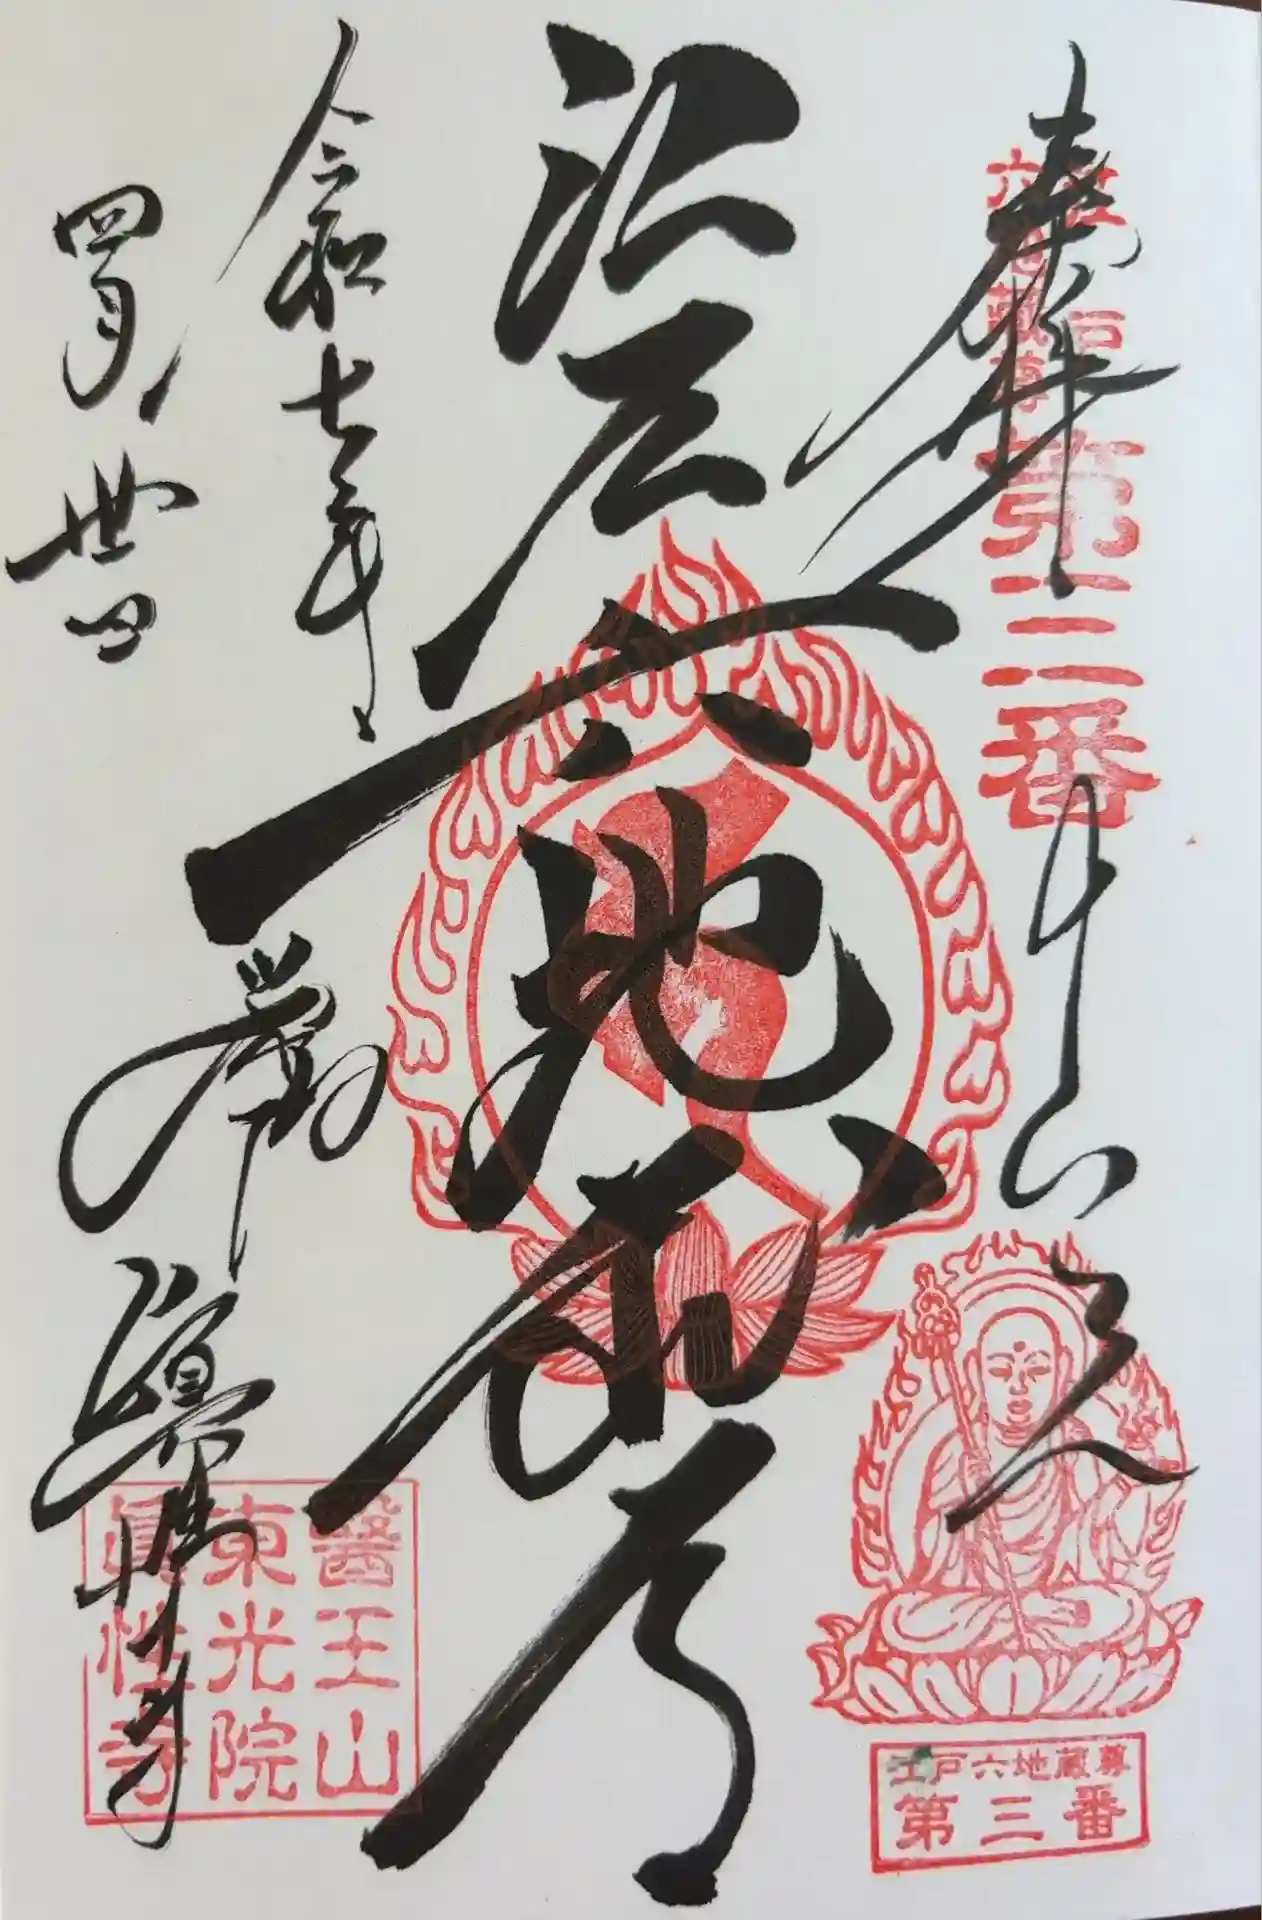 奉拝
江戸
六地蔵尊
第三番
江戸六地蔵尊
第三番
江戸六地蔵尊
令和七年
四月廿四日
巣鴨
眞性寺
醫王山
東光院
眞性寺